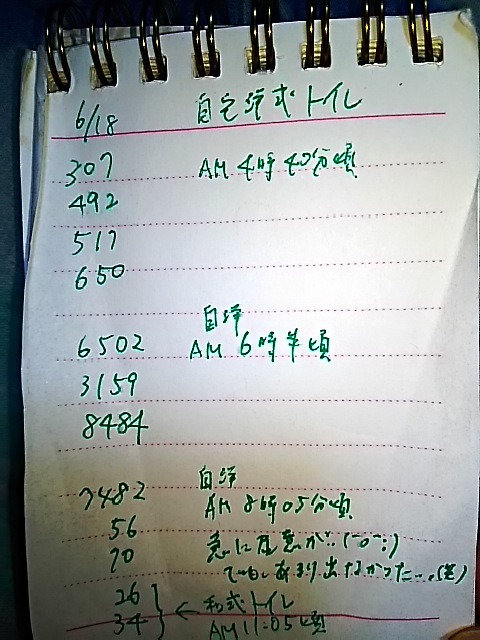 6/18 自宅洋式トイレ
307 AM 4時40分頃
492
517
650
自洋
6502 AM 6時半頃
3159
8484
自洋
7482 AM 8時05分頃
56 急に便意が…(-o-;)
70 でもあまり出なかった…(笑)
26
34 } ← 和式トイレ
AM 11:05頃